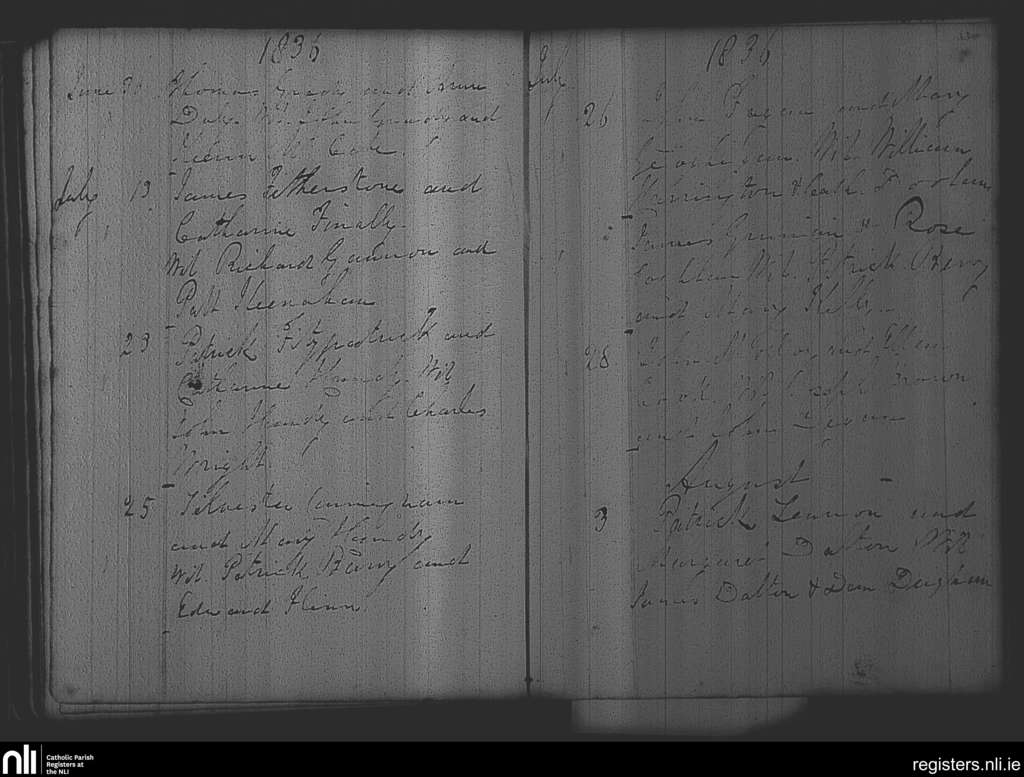 1836
June 30 Thomas and Anne
Duke Wit. John and
July 13 James Fetherstone and
Catharine Finally
Wit Richard Gannon and
Patt Heenahan
23 Patrick Fitzpatrick and
Catharine Handy Wit
John Handy and Charles
Wright
25 Silvester Cuningham
and Mary Handy
Wit. Patrick Barry and
Edward Flinn
1836
July
26 John Fagan and Mary
Wit. William
Harrington & Cath.
James & Rose
Wit. Patrick Berry
and Mary Kelly
28 John and Ellen
Wit Brown
and John
August
3 Patrick Lennon and
Margaret Dalton Wit
James Dalton & Dan
nli
Catholic Parish
Registers at
the NLI
registers.nli.ie